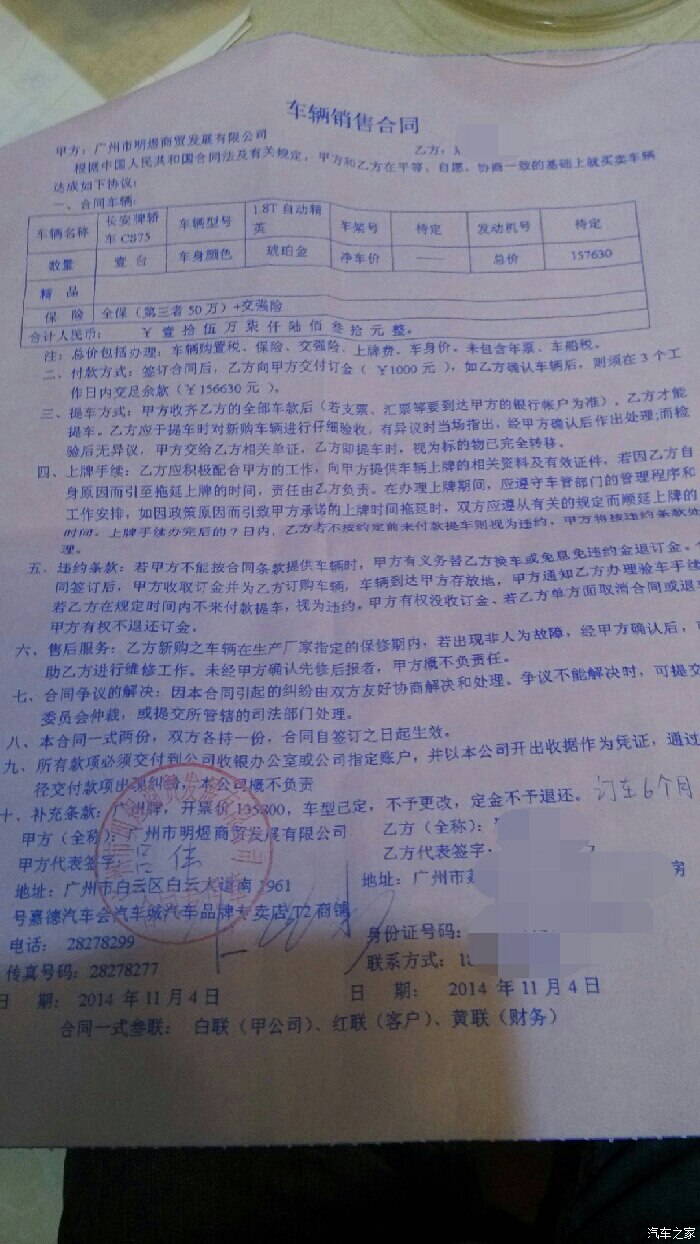 车辆销售合同
甲方：广州市明煜商贸发展有限公司 乙方：
根据中国人民共和国合同法及有关规定，甲方和乙方在平等、自愿、协商一致的基础上就买卖车辆
达成如下协议：
一、合同车辆：
车辆名称 长安牌轿车CS75 车辆型号 1.8T自动精英 车架号 待定 发动机号 待定
数量 壹台 车身颜色 琥珀金 净车价 —— 总价 157630
精 品
保 险 全保（第三者50万）+交强险
合计人民币： ￥ 壹拾伍万柒仟陆佰叁拾元整。
注：总价包括办理：车辆购置税、保险、交强险、上牌费、车身价。未包含年票、车船税。
二、付款方式：签订合同后，乙方向甲方交付订金（￥1000元），如乙方确认车辆后，则须在3个工
作日内交足余款（￥156630元）。
三、提车方式：甲方收齐乙方的全部车款后（若支票、汇票等要到达甲方的银行帐户为准），乙方才能
提车。乙方应于提车时对新购车辆进行仔细验收，有异议时当场指出，经甲方确认后作出处理；而检
验后无异议，甲方交给乙方相关单证，乙方即提车时，视为标的物已完全转移。
四、上牌手续：乙方应积极配合甲方的工作，向甲方提供车辆上牌的相关资料及有效证件，若因乙方自
身原因而引至拖延上牌的时间，责任由乙方负责。在办理上牌期间，应遵守车管部门的管理程序和
工作安排，如因政策原因而引致甲方承诺的上牌时间拖延时，双方应遵从有关的规定而顺延上牌的
时间。上牌手续办完后的7日内，乙方若不按约定前来付款提车则视为违约，甲方将按违约条款处
理。
五、违约条款：若甲方不能按合同条款提供车辆时，甲方有义务替乙方换车或免息免违约金退订金。
同签订后，甲方收取订金并为乙方订购车辆，车辆到达甲方存放地，甲方通知乙方办理验车手续
若乙方在规定时间内不来付款提车，视为违约。甲方有权没收订金、若乙方单方面取消合同或退车
甲方有权不退还订金。
六、售后服务：乙方新购之车辆在生产厂家指定的保修期内，若出现非人为故障，经甲方确认后，可
助乙方进行维修工作。未经甲方确认先修后报者，甲方概不负责任。
七、合同争议的解决：因本合同引起的纠纷由双方友好协商解决和处理。争议不能解决时，可提交
委员会仲裁，或提交所管辖的司法部门处理。
八、本合同一式两份，双方各持一份，合同自签订之日起生效。
九、所有款项必须交付到公司收银办公室或公司指定账户，并以本公司开出收据作为凭证，通过
径交付款项出现纠纷，本公司概不负责
十、补充条款：广州牌，开票价135800，车型已定，不予更改，定金不予退还。订车6个月
甲方（全称）：广州市明煜商贸发展有限公司 乙方（全称）：
甲方代表签字： 乙方代表签字：
地址：广州市白云区白云大道南1961 地址：广州市 房
号嘉德汽车会汽车城汽车品牌专卖店T2商铺
电话： 28278299 身份证号码：
传真号码：28278277 联系方式：1
日 期： 2014年11月4日 日 期： 2014年11月4日
合同一式叁联： 白联（甲公司）、红联（客户）、黄联（财务）
汽车之家